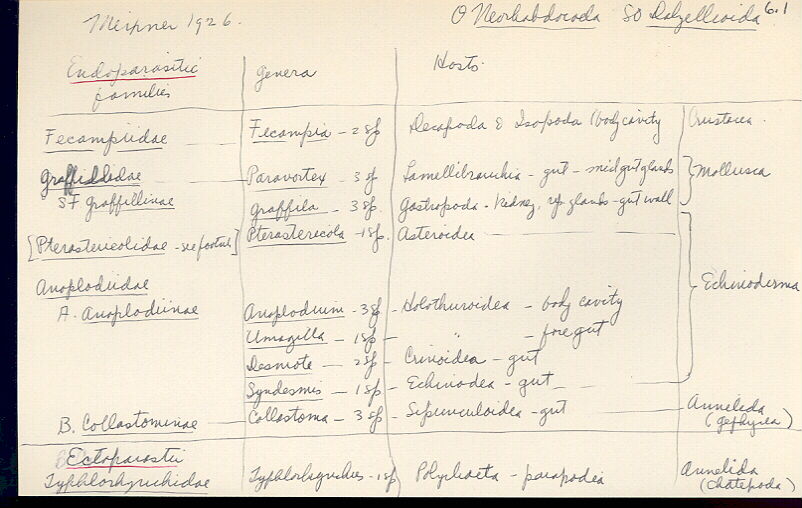 Meixner 1926. O Neorhabdocoda SO Dalzellioida 6.1
Endoparasitic families Genera Hosts
Fecampiidae Fecampia - 2 sp Decapoda & Isopoda body cavity Crustacea
Graffillidae Paravortex - 3 sp Lamellibranchia - gut - mid gut glands Mollusca
SF Graffillinae Graffila - 3 sp. Gastropoda - kidney, rp glands - gut wall
[Pterastericolidae - see footnote] Pterastericola - 1 sp. Asteroidea
Anoplodiidae Echinoderma
A. Anoplodiinae Anoplodium - 3 sp - Holothuroidea - body cavity
Umagilla - 1 sp - " - fore gut
Desmote - 2 sp - Crinoidea - gut
Syndesmis - 1 sp - Echinodea - gut
B. Collastominae Collastoma - 3 sp - Sipunculoidea - gut Annelida (gephyrea)
Ectoparasitic
Typhlorhynchidae Typhlorhynchus - 1 sp Polychaeta - parapodia Annelida (chaetopoda)